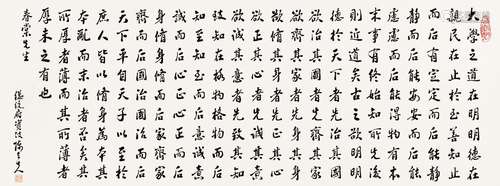 大学之道在明明德在
親民在止於至善知止
而后有定定而后能静
静而后能安安而后能
慮慮而后能得物有本
末事有終始知所先後
則近道矣古之欲明明
德於天下者先治其國
欲治其國者先齊其家
欲齊其家者先脩其身
欲脩其身者先正其心
欲正其心者先誠其意
欲誠其意者先致其知
致知在格物物格而后
知至知至而后意誠意
誠而后心正心正而后
身脩身脩而后家齊家
齊而后國治國治而后
天下平自天子以至於
庶人皆以脩身為本其
本亂而末治者否矣其
所厚者薄而其所薄者
厚未之有也
春棠先生